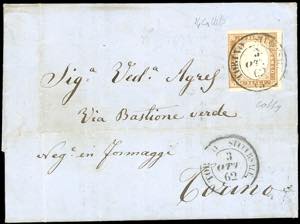 TORINO
3
OTT
62
Sig.ª Ved.ª Agres
Via Bastione verde
Neg.te in Formaggi
3
OTT
62
Torino